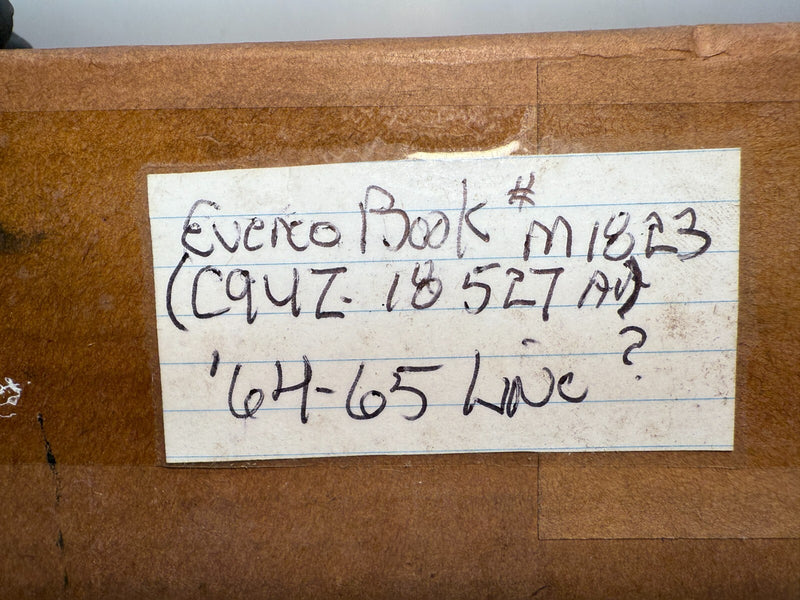 Everco Book # M1823
(C4UZ-18527 A)
'64-65 LINC ?